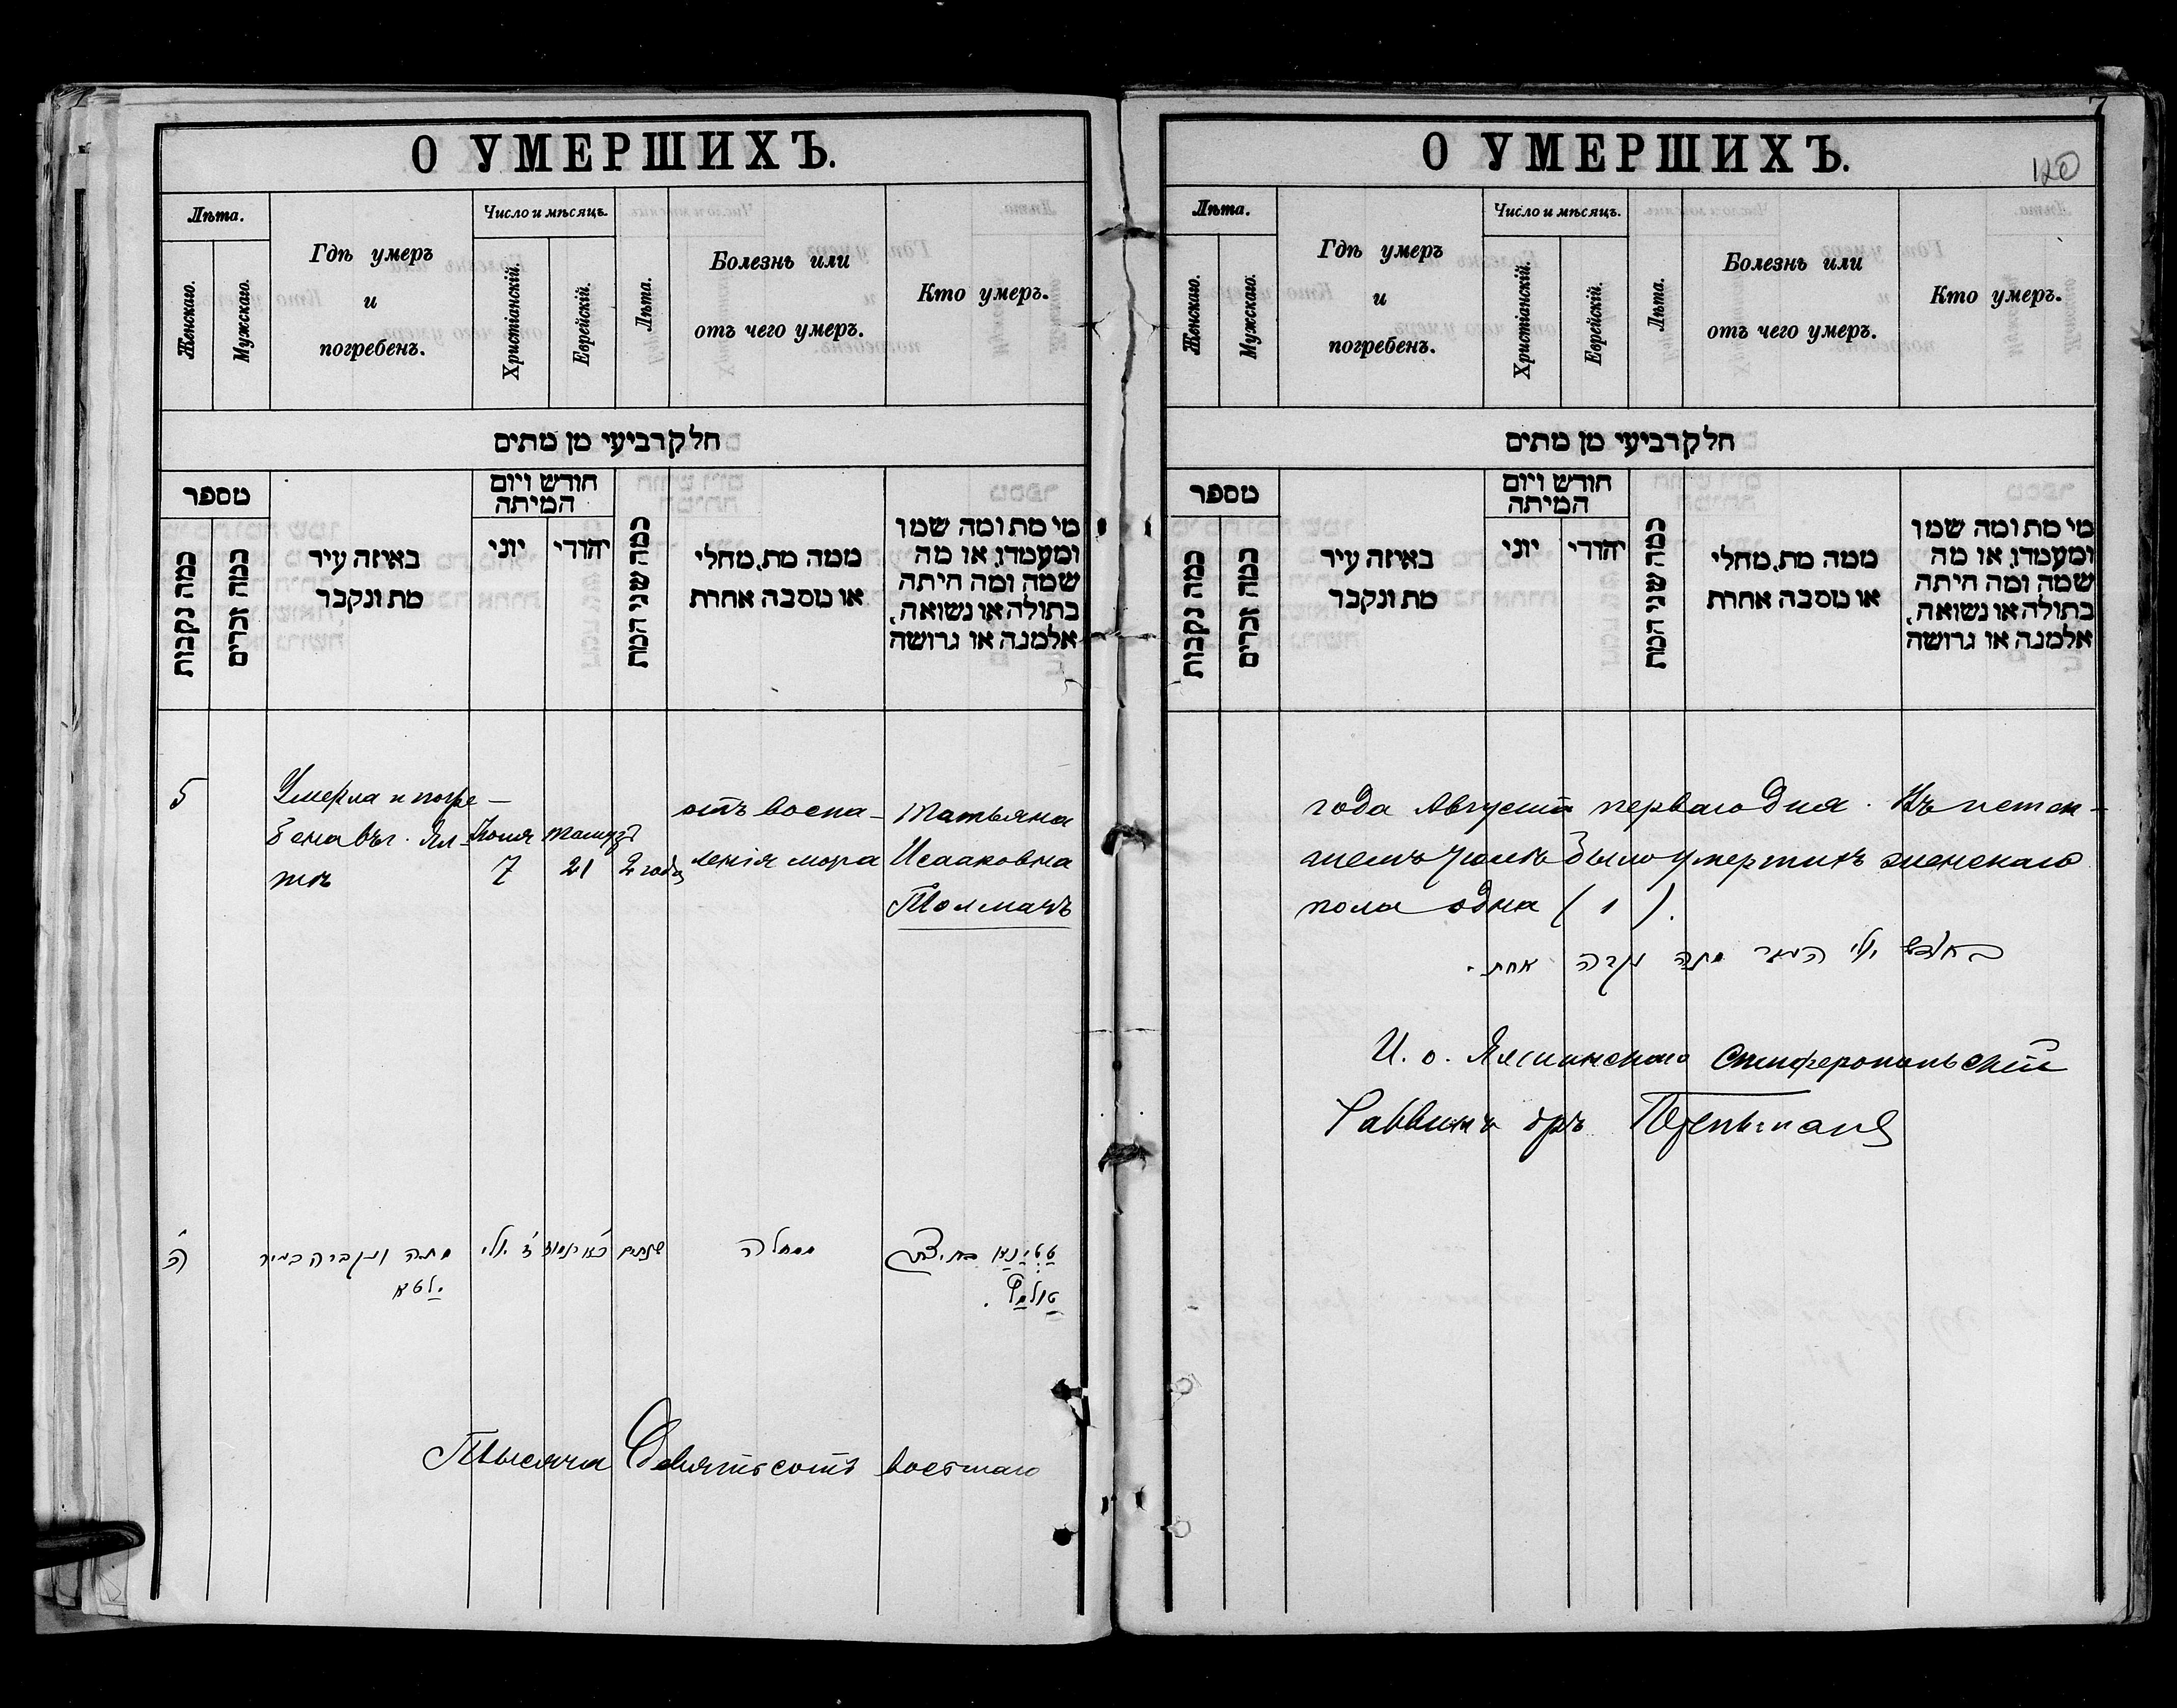 О УМЕРШИХЪ.
Лѣта.
Женскаго.
Мужскаго.
Гдѣ умеръ
и
погребенъ.
Число и мѣсяцъ.
Христіанскій.
Еврейскій.
Лѣта.
Болезнь или
отъ чего умеръ.
Кто умеръ.
חלק רביעי מן מתים
מספר
כמה נקבות
כמה זכרים
באיזה עיר
מת ונקבר
חודש ויום
המיתה
יוני
יהודי
כמה שני המת
ממה מת, מחלי
או מסבה אחרת
מי מת ומה שמו
ומעמדו, או מה
שמה ומה היתה
בתולה או נשואה,
אלמנה או גרושה
5
Умерла и погре-
бена въ г. Ял-
тѣ
Іюля
7
Тамузъ
21
2 года
отъ воспа-
ленія мозга
Татьяна
Исааковна
Толмачъ
ה
מתה ונקברה בעיר
ילטא
ז יולי
כ״א תמוז
שנתים
ממחלה
טטינא בת יצחק
טולמץ.
Тысяча Девятьсотъ восьмаго
7
120
О УМЕРШИХЪ.
Лѣта.
Женскаго.
Мужскаго.
Гдѣ умеръ
и
погребенъ.
Число и мѣсяцъ.
Христіанскій.
Еврейскій.
Лѣта.
Болезнь или
отъ чего умеръ.
Кто умеръ.
חלק רביעי מן מתים
מספר
כמה נקבות
כמה זכרים
באיזה עיר
מת ונקבר
חודש ויום
המיתה
יוני
יהודי
כמה שני המת
ממה מת, מחלי
או מסבה אחרת
מי מת ומה שמו
ומעמדו, או מה
שמה ומה היתה
בתולה או נשואה,
אלמנה או גרושה
года Августа перваго дня. Въ истек-
шемъ Іюлѣ было умершихъ женскаго
пола одна (1).
בחדש יולי העבר מתה נקבה אחת.
И. о. Ялтинскаго Симферопольскій
Раввинъ